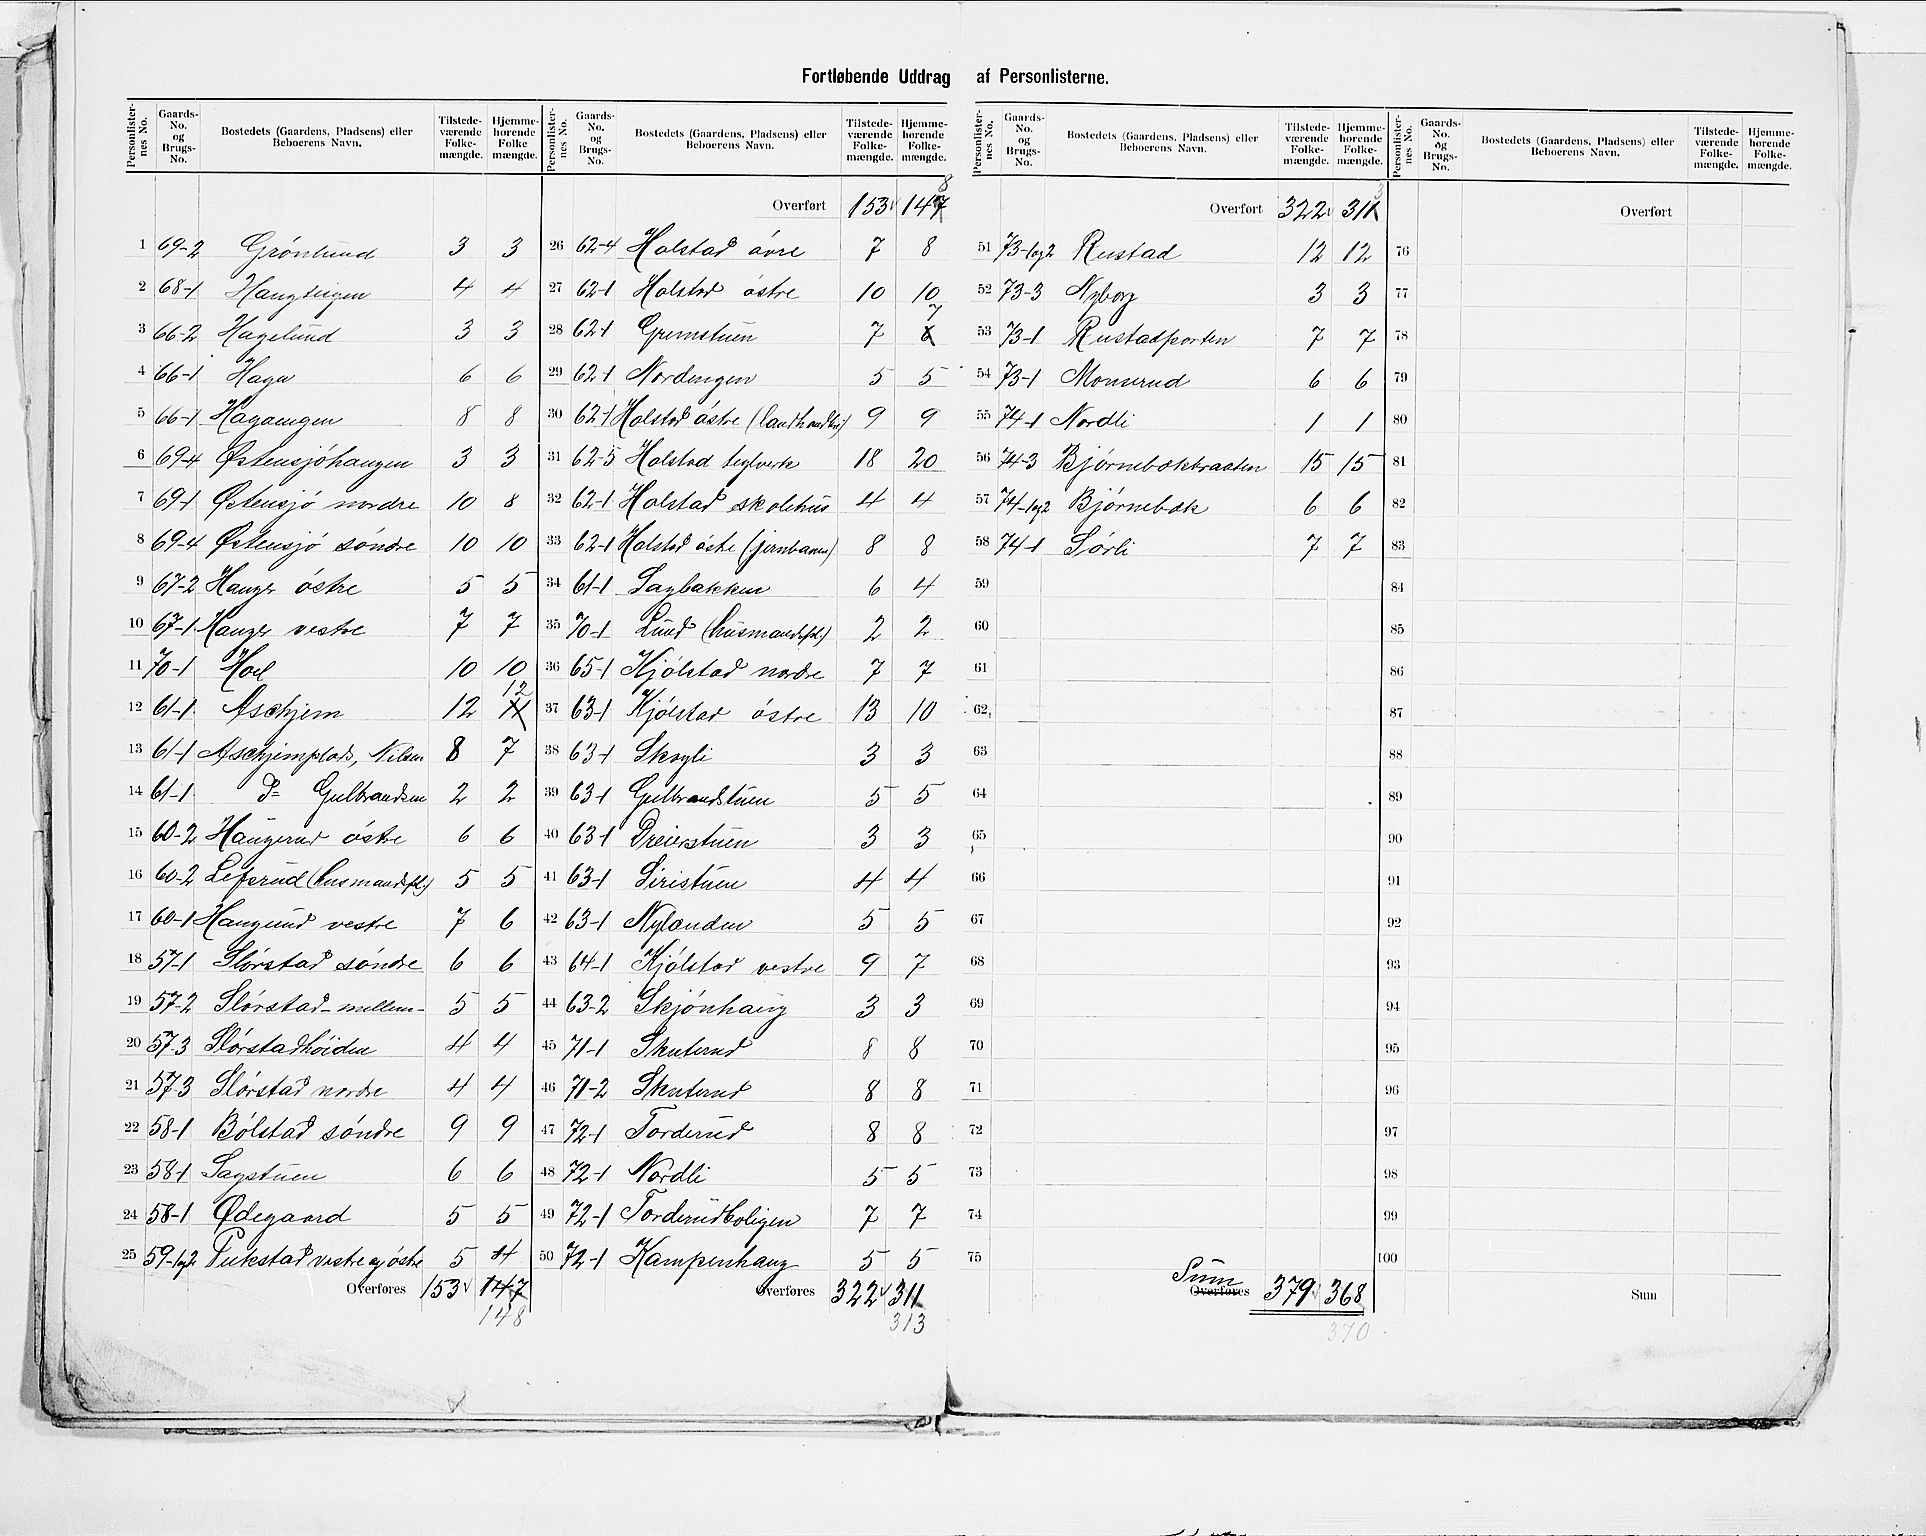 Fortløbende Uddrag af Personlisterne.
Personlisternes No. | Gaards-No. og Brugs-No. | Bostedets (Gaardens, Pladsens) eller Beboerens Navn. | Tilstedeværende Folkemængde. | Hjemmehørende Folkemængde.
1 69-2 Grönlund 3 3
2 68-1 Haugteigen 4 4
3 66-2 Hagelund 3 3
4 66-1 Haga 6 6
5 66-1 Hagaengen 8 8
6 69-4 Østensjöhaugen 3 3
7 69-1 Østensjö nordre 10 8
8 69-4 Østensjö söndre 10 10
9 67-2 Hauger östre 5 5
10 67-1 Hauger vestre 7 7
11 70-1 Hoel 10 10
12 61-1 Aschjem 12 11 12
13 61-1 Aschjemplads, Nilsen 8 7
14 61-1 Do Gulbrandsen 2 2
15 60-2 Haugerud östre 6 6
16 60-2 Lefsrud (husmandspl.) 5 5
17 60-1 Haugerud vestre 7 6
18 57-1 Slörstad söndre 6 6
19 57-2 Slörstad-mellem- 5 5
20 57-3 Slörstadhöiden 4 4
21 57-3 Slörstad nordre 4 4
22 58-1 Bölstad söndre 9 9
23 58-1 Sagstuen 6 6
24 58-1 Ødegaard 5 5
25 59-1og2 Pukstad vestre og östre 5 4
Overføres 153 147
148
Overført 153 147 8
26 62-4 Holstad övre 7 8
27 62-1 Holstad östre 10 10
28 62-1 Gremstuen 7 6 7
29 62-1 Nordengen 5 5
30 62-1 Holstad östre (landhandleri) 9 9
31 62-5 Holstad teglverk 18 20
32 62-1 Holstad skolehus 4 4
33 62-1 Holstad östre (jernbanen) 8 8
34 61-1 Sagbakken 6 4
35 70-1 Lund (husmandspl.) 2 2
36 65-1 Kjölstad nordre 7 7
37 63-1 Kjölstad östre 13 10
38 63-1 Skogli 3 3
39 63-1 Gulbrandstuen 5 5
40 63-1 Dreierstuen 3 3
41 63-1 Siristuen 4 4
42 63-1 Nylænden 5 5
43 64-1 Kjölstad vestre 9 7
44 63-2 Skjönhaug 3 3
45 71-1 Skuterud 8 8
46 71-2 Skuterud 8 8
47 72-1 Torderud 8 8
48 72-1 Nordli 5 5
49 72-1 Torderudboligen 7 7
50 72-1 Kampenhaug 5 5
Overføres 322 311
313
Overført 322 311 3
51 73-1og2 Rustad 12 12
52 73-3 Nyborg 3 3
53 73-1 Rustadporten 7 7
54 73-1 Monserud 6 6
55 74-1 Nordli 1 1
56 74-3 Björnebækbraaten 15 15
57 74-1og2 Björnebæk 6 6
58 74-1 Sörli 7 7
59
60
61
62
63
64
65
66
67
68
69
70
71
72
73
74
75
Sum
Overføres 379 368
370
Overført
76
77
78
79
80
81
82
83
84
85
86
87
88
89
90
91
92
93
94
95
96
97
98
99
100
Sum